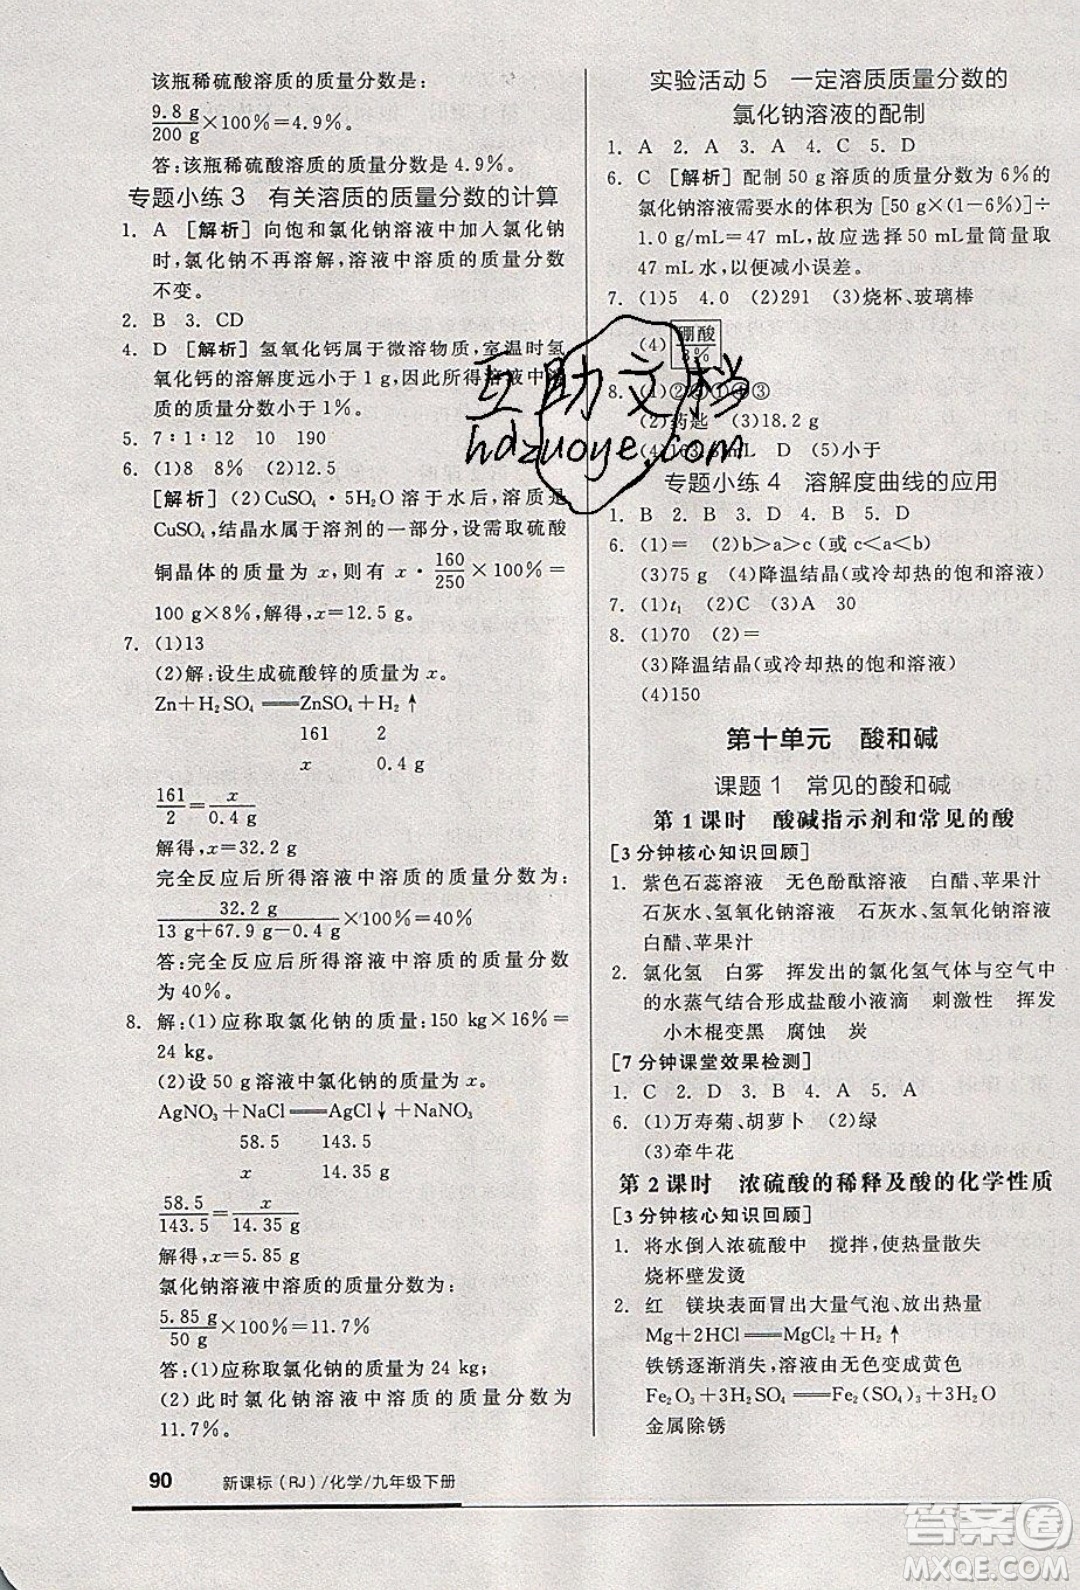 该瓶稀硫酸溶质的质量分数是：
9.8 g/200 g×100%=4.9%。
答：该瓶稀硫酸溶质的质量分数是 4.9%。
专题小练 3 有关溶质的质量分数的计算
1. A [解析] 向饱和氯化钠溶液中加入氯化钠
时，氯化钠不再溶解，溶液中溶质的质量分数
不变。
2. B 3. CD
4. D [解析] 氢氧化钙属于微溶物质，室温时氢
氧化钙的溶解度远小于 1 g，因此所得溶液中溶
质的质量分数小于 1%。
5. 7∶1∶12 10 190
6. (1)8 8% (2)12.5
[解析] (2)CuSO₄·5H₂O 溶于水后，溶质是
CuSO₄，结晶水属于溶剂的一部分，设需取硫酸
铜晶体的质量为 x，则有 x·160/250×100%=
100 g×8%，解得，x=12.5 g。
7. (1)13
(2)解：设生成硫酸锌的质量为 x。
Zn+H₂SO₄══ZnSO₄+H₂↑
161 2
x 0.4 g
161/2=x/0.4 g
解得，x=32.2 g
完全反应后所得溶液中溶质的质量分数为：
32.2 g/13 g+67.9 g-0.4 g×100%=40%
答：完全反应后所得溶液中溶质的质量分数
为 40%。
8. 解：(1)应称取氯化钠的质量：150 kg×16%=
24 kg。
(2)设 50 g 溶液中氯化钠的质量为 x。
AgNO₃+NaCl══AgCl↓+NaNO₃
58.5 143.5
x 14.35 g
58.5/143.5=x/14.35 g
解得，x=5.85 g
氯化钠溶液中溶质的质量分数为：
5.85 g/50 g×100%=11.7%
答：(1)应称取氯化钠的质量为 24 kg；
(2)此时氯化钠溶液中溶质的质量分数为
11.7%。
90 新课标（RJ）/化学/九年级下册
实验活动 5 一定溶质质量分数的
氯化钠溶液的配制
1. A 2. D 3. A 4. C 5. D
6. C [解析] 配制 50 g 溶质的质量分数为 6%的
氯化钠溶液需要水的体积为[50 g×(1-6%)]÷
1.0 g/mL=47 mL，故应选择 50 mL 量筒量取
47 mL 水，以便减小误差。
7. (1)5 4.0 (2)291 (3)烧杯、玻璃棒
(4) 硼酸 3%
8. (1)
(2)药匙 (3)18.2 g
(4) mL D (5)小于
专题小练 4 溶解度曲线的应用
1. B 2. B 3. D 4. B 5. D
6. (1)= (2)b>a>c(或 c<a<b)
(3)75 g (4)降温结晶(或冷却热的饱和溶液)
7. (1)t₁ (2)C (3)A 30
8. (1)70 (2)=
(3)降温结晶(或冷却热的饱和溶液)
(4)150
第十单元 酸和碱
课题 1 常见的酸和碱
第 1 课时 酸碱指示剂和常见的酸
[3 分钟核心知识回顾]
1. 紫色石蕊溶液 无色酚酞溶液 白醋、苹果汁
石灰水、氢氧化钠溶液 石灰水、氢氧化钠溶液
白醋、苹果汁
2. 氯化氢 白雾 挥发出的氯化氢气体与空气中
的水蒸气结合形成盐酸小液滴 刺激性 挥发
小木棍变黑 腐蚀 炭
[7 分钟课堂效果检测]
1. C 2. D 3. B 4. A 5. A
6. (1)万寿菊、胡萝卜 (2)绿
(3)牵牛花
第 2 课时 浓硫酸的稀释及酸的化学性质
[3 分钟核心知识回顾]
1. 将水倒入浓硫酸中 搅拌，使热量散失
烧杯壁发烫
2. 红 镁块表面冒出大量气泡、放出热量
Mg+2HCl══MgCl₂+H₂↑
铁锈逐渐消失，溶液由无色变成黄色
Fe₂O₃+3H₂SO₄══Fe₂(SO₄)₃+3H₂O
金属除锈
互助文档
hdzuoye.com
答案圈
MXQE.COM